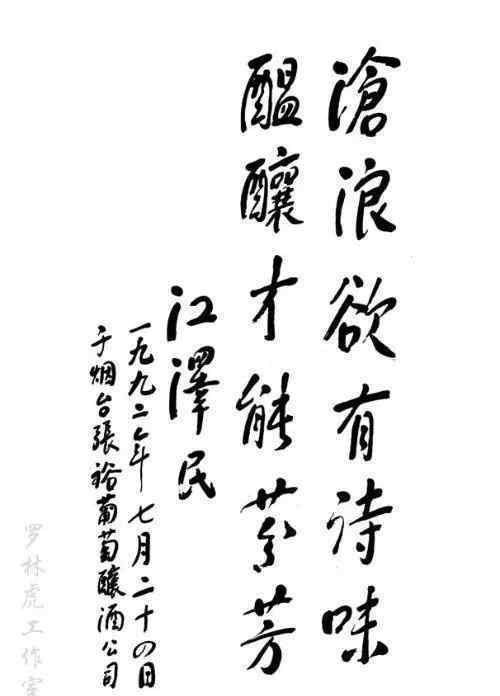 滄浪欲有诗味
醖釀才能芬芳
江澤民
一九九二年七月二十四日
于烟台張裕葡萄釀酒公司
罗林虎工作室